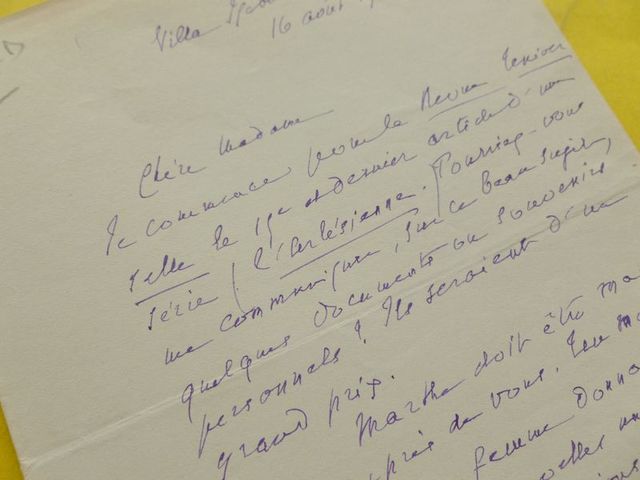 Villa
16 août
Chère Madame
Je commence pour la Revue Univer
selle le 15e et dernier article d'une
série : l'Arlésienne. Pourriez-vous
me communiquer, sur ce beau sujet,
quelques documents ou souvenirs
personnels? Ils seraient d'un
grand prix.
Marthe doit être
près de vous.
femme